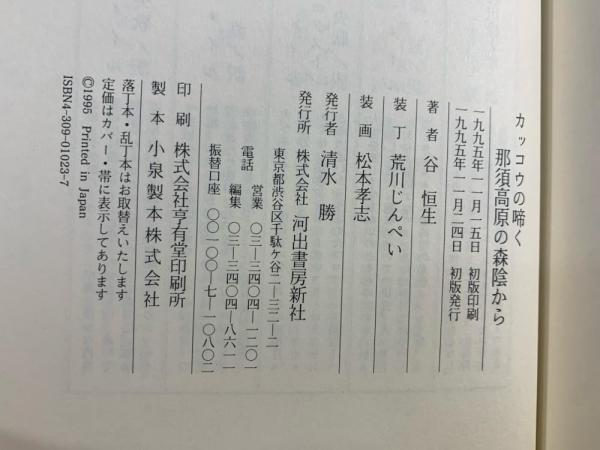 カッコウの啼く
那須高原の森陰から
一九九五年一一月一五日　初版印刷
一九九五年一一月二四日　初版発行
著者　谷恒生
装丁　荒川じんぺい
装画　松本孝志
発行者　清水勝
発行所　株式会社　河出書房新社
東京都渋谷区千駄ヶ谷二―三二―二
電話　営業　〇三―三四〇四―一二〇一
編集　〇三―三四〇四―八六一一
振替口座　〇〇一〇〇―七―一〇八〇二
印刷　株式会社亨有堂印刷所
製本　小泉製本株式会社
落丁本・乱丁本はお取替えいたします
定価はカバー・帯に表示してあります
©1995 Printed in Japan
ISBN4-309-01023-7